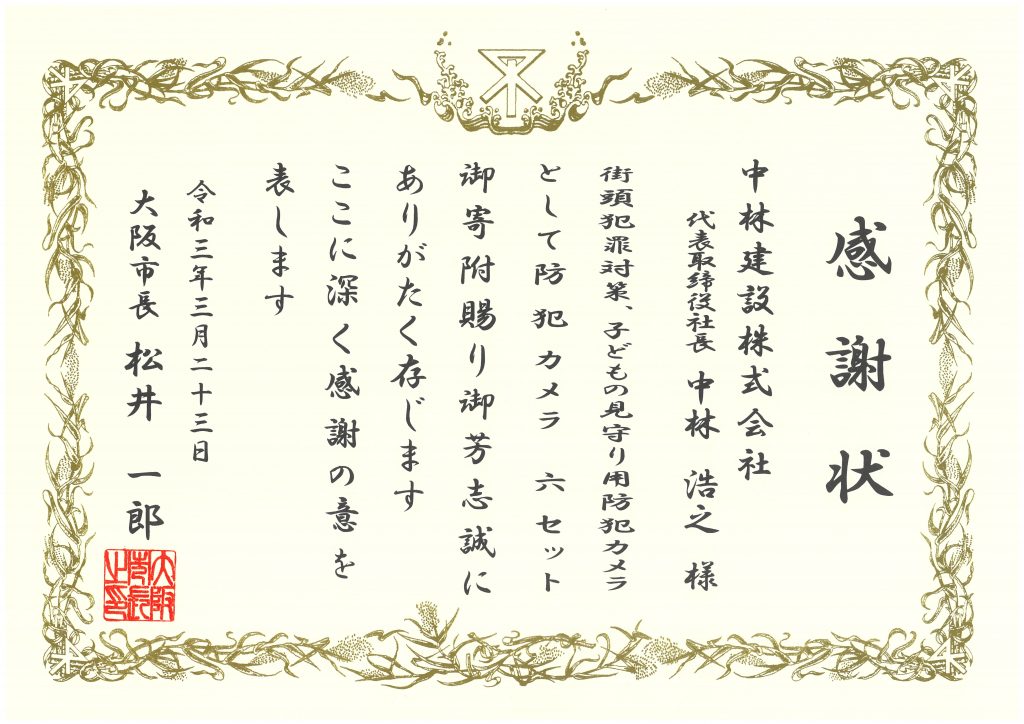 感謝状
中林建設株式会社
代表取締役社長 中林 浩之 様
街頭犯罪対策、子どもの見守り用防犯カメラ
として防犯カメラ 六セット
御寄附賜り御芳志誠に
ありがたく存じます
ここに深く感謝の意を
表します
令和三年三月二十三日
大阪市長 松井 一郎
大阪市長之印